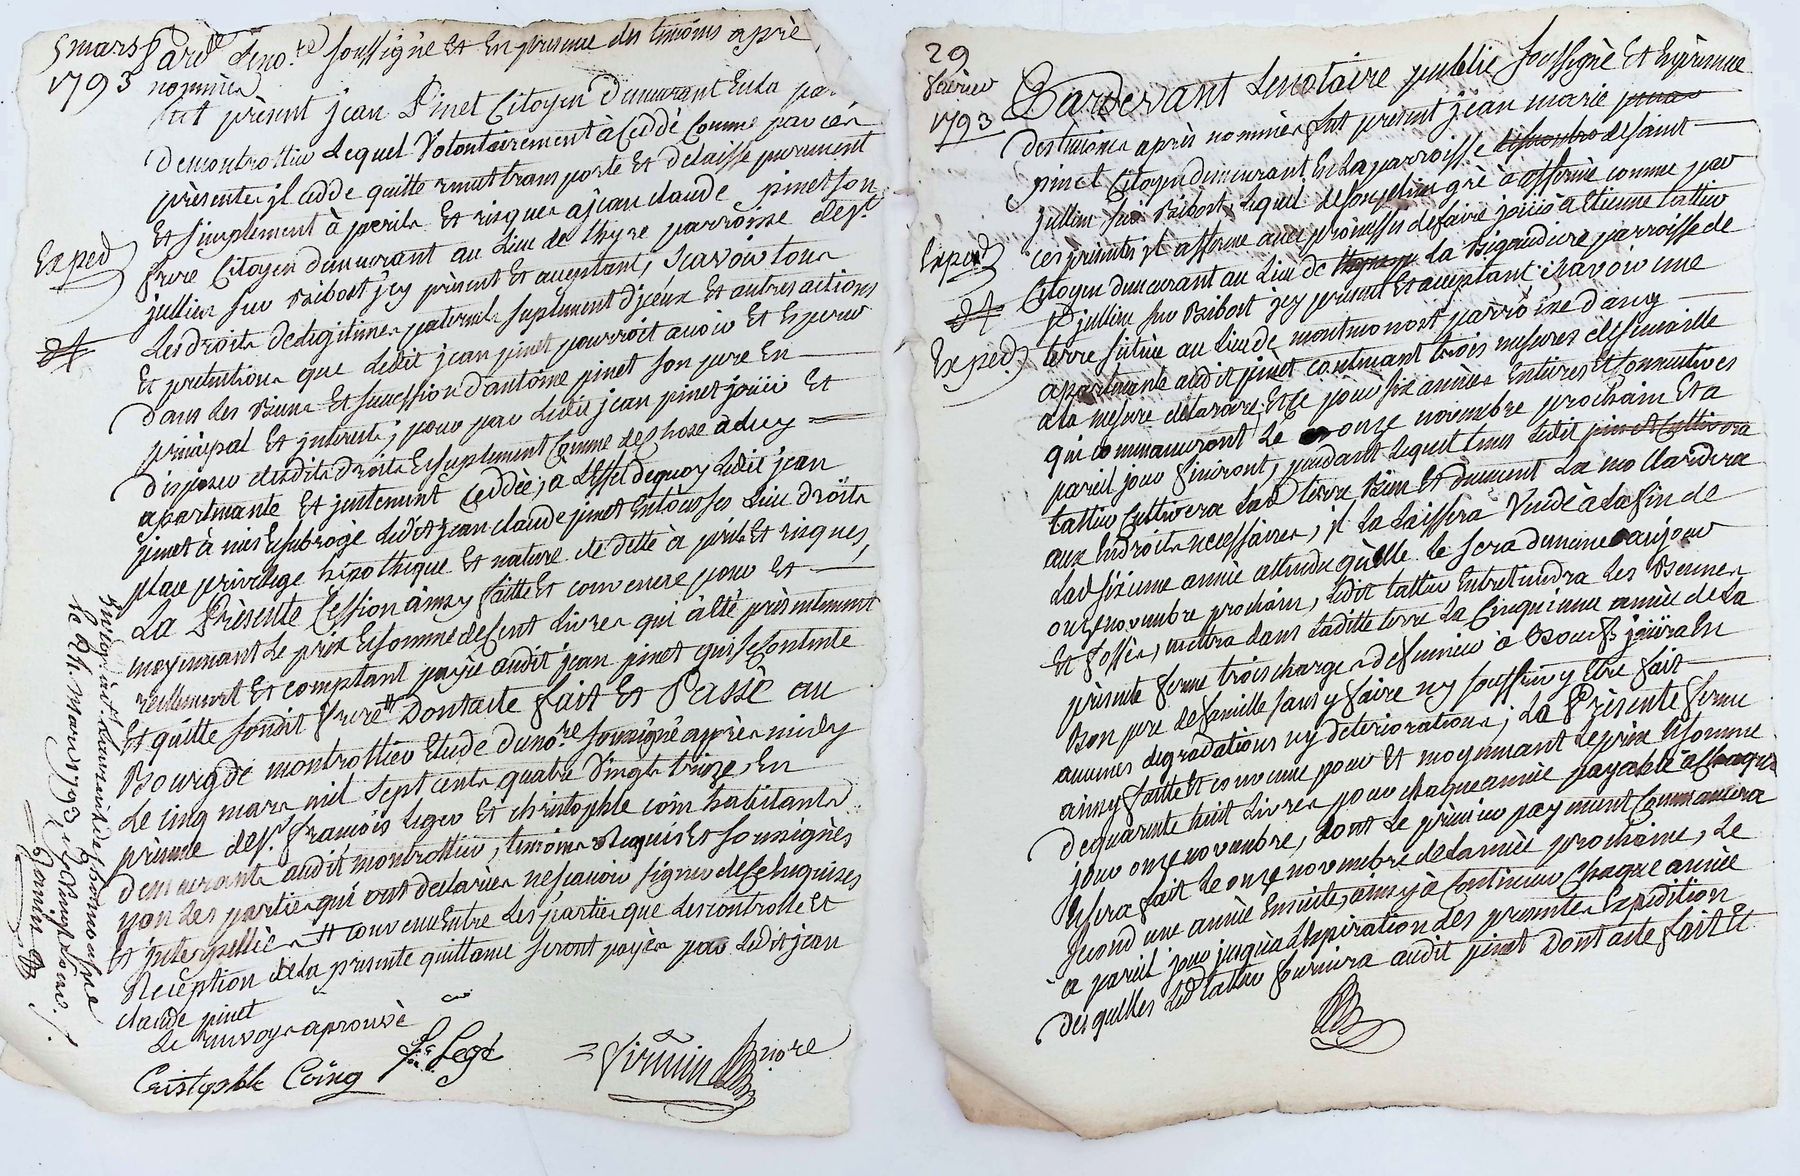 5 mars
1793
Pard.t Le no.re soussigné Et En presence des temoins aprè
nommés
fut présent jean Pinet Citoyen demeurant En la pa
de montrottier Lequel Volontairement à Ceddé Comme par ces
présentes jl cedde quitte remet transporte Et delaisse purement
Et simplement à perils Et risques a jean claude pinet son
frere Citoyen demeurant au Lieu de thyre parroisse de St
jullien sur Bibost jcy présent Et acceptant, scavoir tous
Les droits de legitimes paternels suplement d'jceux Et autres actions
Et pretentions que Ledit jean pinet pourroit avoir Et Esperer
dans Les Biens Et succession d'antoine pinet son pere En
principal Et jnterets; pour par Ledit jean pinet jouir Et
disposer desdits droits Et suplement Comme de Chose a luy
apartenante Et justement Ceddée, à L'effet de quoy Ledit jean
pinet à mis Et subrogé Ledit jean claude pinet En tous ses Lieu droits
place privilege hipotheque Et nature de dette à perils Et risques,
La Présente Cession ainsy faitte Et convenue pour Et
moyennant Le prix Et somme de Cent Livres qui à Eté présentement
reellement Et comptant payée audit jean pinet qui se Contente
Et quitte sondit frere # Dont acte fait Et Passé au
Bourg de montrottier Etude du no.re soussigné aprés midy
Le cinq mars mil sept cents quatre Vingts treize, En
présence de S.r françois Leger Et christophle coin habitants
demeurants audit montrottier, temoins Requis Et soussignés
non Les parties qui ont declarées ne scavoir signer de Ce Enquises
Et jnterpellées # convenu Entre Les parties que Les controlle Et
Reception de La presente quittance seront payés par Ledit jean
claude pinet
Le renvoy aprouvé
Cristophle Coing
f.s Legé
= firmin no.re
Exped
dt
Le 24. Mars 1793
29
fevrier
1793
Pardevant Le notaire public soussigné Et En presence
des temoins aprés nommés fut présent jean marie
pinet Citoyen demeurant En La parroisse de saint
jullien sur Bibost, Lequel de son plein gré a affermé comme par
ces présentes jl afferme avec promesses de faire jouir à Etienne tattier
Citoyen demeurant au Lieu de La Rigaudiere parroisse de
St jullien sur Bibost jcy présent Et acceptant scavoir une
terre sittuée au Lieu de montmonost parroisse d'ancy
apartenante audit pinet contenant trois mesures de semaille
a La mesure de Larare, Et Ce pour six années Entieres Et Consecutives
qui commanceront Le onze novembre prochain Et a
pareil jour finiront, pendant Lequel tems Ledit
tattier Cultivera Lad. terre Bien Et duement La
aux Endroits necessaires, jl La Laissera Vuide à La fin de
Lad. sixieme année attendu qu'elle Le sera de meme au jour
onze novembre prochain, Ledit tattier Entretiendra Les
Et fossés, mettra dans Laditte terre La Cinquieme année de La
présente ferme trois charges de fumier à Boeufs, jouira En
Bon pere de famille sans y faire ny souffrir y Etre fait
aucunes degradations ny deteriorations; La Présente ferme
ainsy faitte Et convenue pour Et moyennant Le prix Et somme
de quarante huit Livres pour chaque année payable à Chaque
jour onze novembre, dont Le premier payement Commancera
Et sera fait Le onze novembre de Lannée prochaine, Le
second une année Ensuite, ainsy à Continuer Chaque année
a pareil jour jusqu'a L'Expiration des presentes Expedition
des quelles Led. tattier fournira audit pinet Dont acte fait Et
Exped
dt
Exped